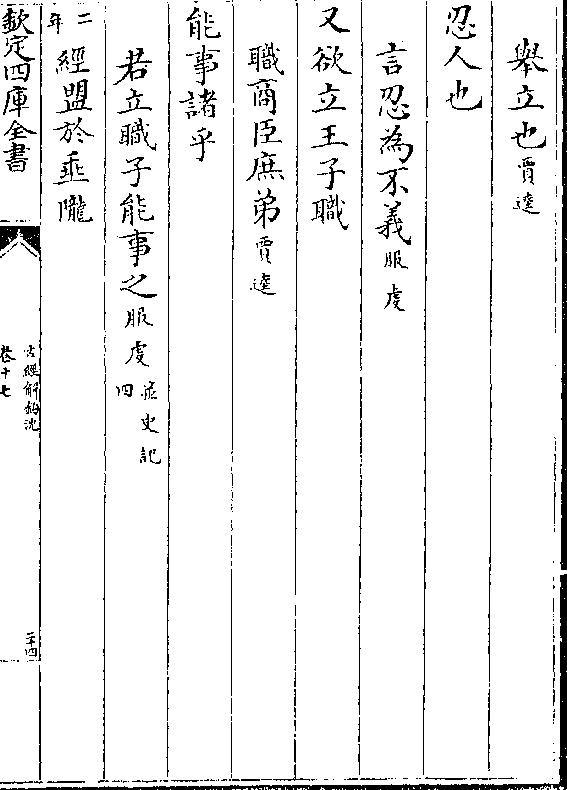 舉立也賈逵
忍人也
言忍為不義服虔
又欲立王子職
職商臣庶弟賈逵
能事諸乎
君立職子能事之服虔並史記四
二年經盟於垂隴
欽定四庫全書
古經解鉤沈
卷十七
二十四